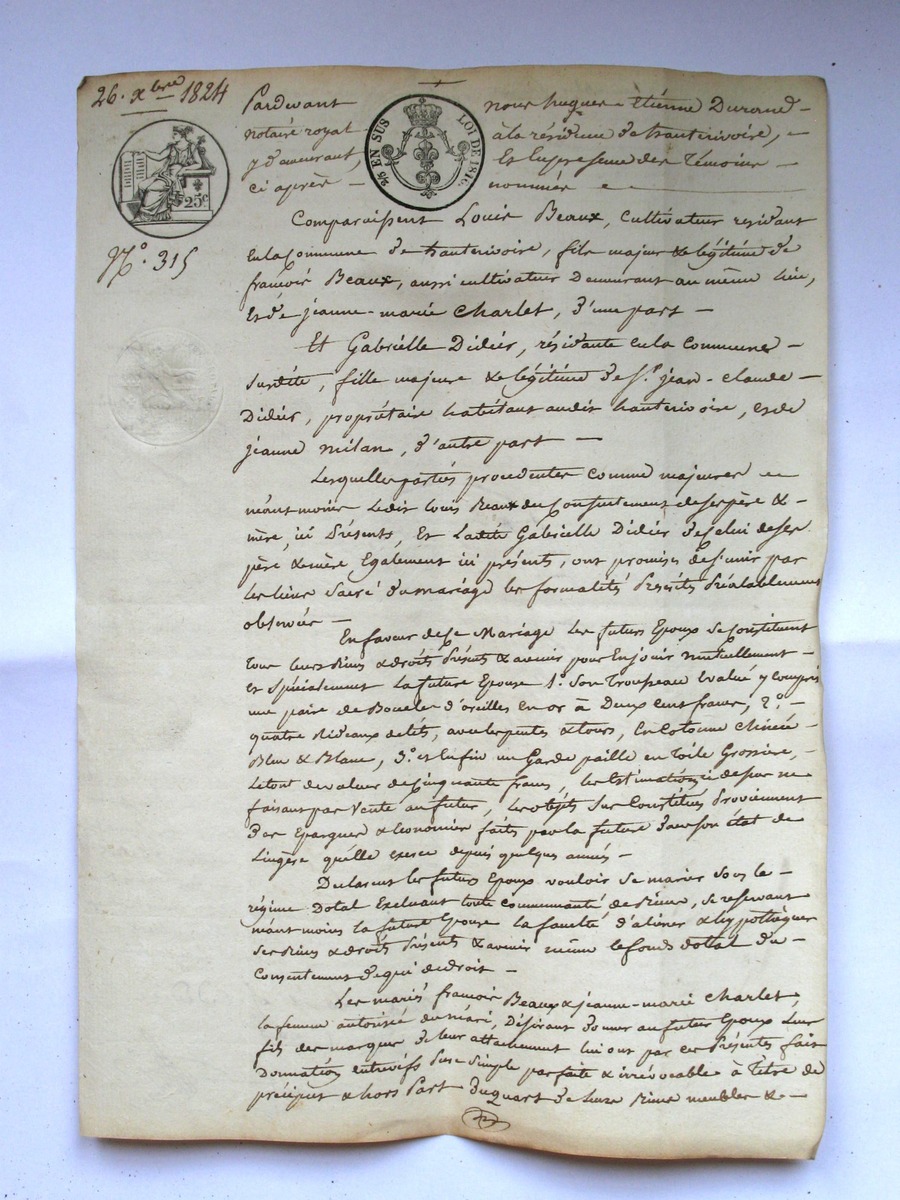 26. xbre 1824
Pardevant nous hugues-étienne Durand-
notaire royal à la résidence de hauterivoire,
y demeurant, Et En présence des Témoins
ci après - nommés
2/5 EN SUS LOI DE 1816.
25c
N.° 315
Comparaissent Louis Beaux, Cultivateur residant
En la Commune de hauterivoire, fils majeur & légitime de
françois Beaux, aussi cultivateur Demeurant au même lieu,
Et de jeanne-marie Charlet, d'une part -
Et Gabriélle Didiér, résidante en la commune
susdite, fille majeure & légitime de Sr. jean-claude
Didiér, propriétaire habitant audit hauterivoire, et de
jeanne milan, d'autre part -
Lesquelles parties procedentes comme majeures
néantmoins Ledit Louis Beaux du Consentement de ses père &
mère, ici Présents, Et Ladite Gabriélle Didiér de Celui de ses
père & mère Egalement ici présents, ont promis de s'unir par
les liens Sacré du mariage les formalités Préalablement
observées -
En faveur de Ce Mariage Les futurs Epoux Se Constituent
tous leurs Biens & droits Présents & avenir pour En jouir mutuellement -
et Spécialement La future Epouse 1.° Son Trousseau Evalué y Compris
une paire de Boucles d'oreilles en or à Deux Cent francs, 2.°
quatre Rideaux de lits, avec les pentes & tours, En Cotonne Chinée
Bleu & Blanc, 3.° et Enfin un Garde paille en Toile Grossière,
Le tout de valeur de Cinquante francs, les Estimations ci dessus ne
faisant pas Vente au futur, Les objets Sus Constitués Proviennent
Des Epargnes & Economies faites par la future dans son état de
Lingère qu'élle exerce depuis quelques années -
Declarent les futurs Epoux vouloir Se marier Sous le
régime Dotal Excluant toute Communauté de Biens, Se reservant
néant moins la future Epouse la faculté d'aliéner & hypothéquer
Ses Biens & droits Présents & avenir même le fonds dottal du
Consentement de qui de droit -
Les mariés françois Beaux & jeanne-marie Charlet,
la femme autorisée du mari, Désirant donner au futur Epoux Leur
fils des marques de leur attachement lui ont par ces Présentes fait
Donnation entrevifs Pure Simple parfaite & irrévocable à Titre de
préciput & hors Part du quart de leurs Biens meubles & -